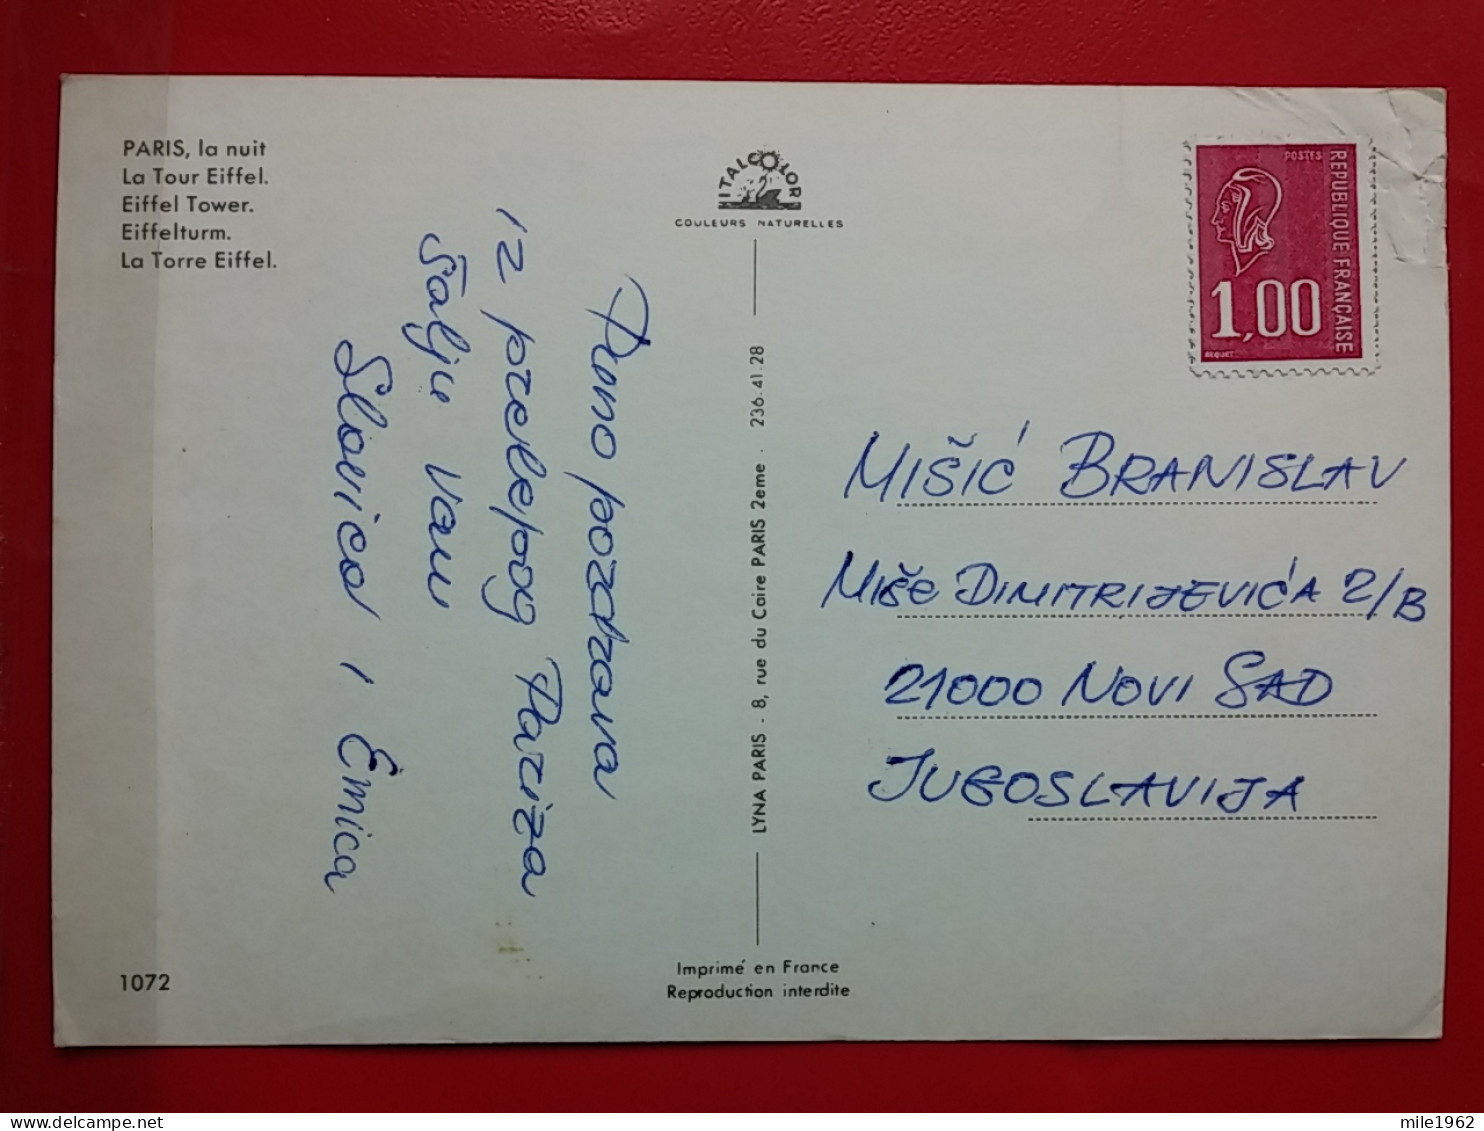 PARIS, la nuit
La Tour Eiffel.
Eiffel Tower.
Eiffelturm.
La Torre Eiffel.
Puno pozdrava
iz prelepog Pariza
šalju vam
Slavica i Emica
1072
ITALCOLOR
COULEURS NATURELLES
LYNA PARIS - 8, rue du Caire PARIS 2eme - 236-41-28
Imprimé en France
Reproduction interdite
POSTES
REPUBLIQUE FRANÇAISE
1,00
BEQUET
MIŠIĆ BRANISLAV
MIŠE DIMITRIJEVIĆA 2/B
21000 NOVI SAD
JUGOSLAVIJA
mile1962